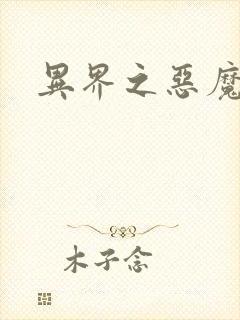 異界之惡魔
木子念